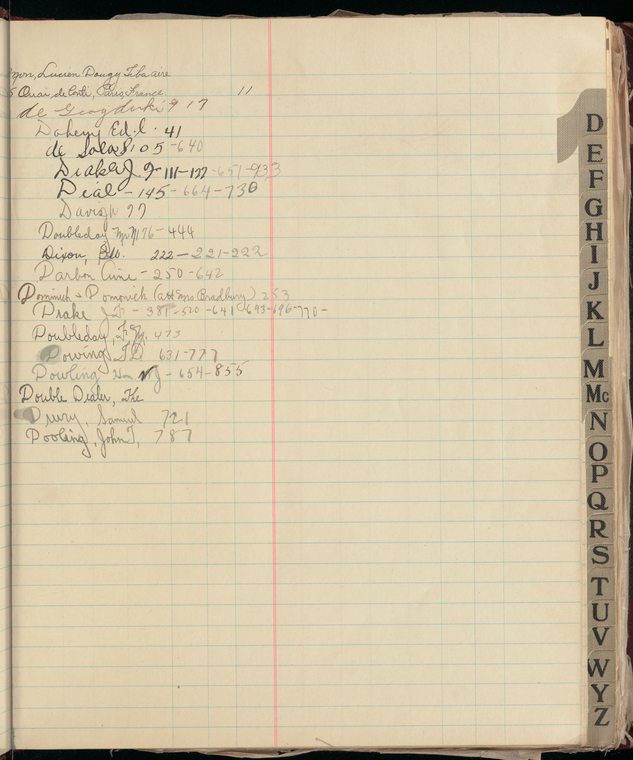 Lucien Dougy Libraire
5 Quai de Conti, Paris France 11
de 9 17
Doheny Ed. L. 41
de Salas 8105-640
Drake J F-111-122-651-933
Dial-145-664-730
Davis 77
Doubleday 176-444
Dixon, Ed. 222-221-222
Darbon Cire-250-642
Dominich & Domovich (att Mrs Bradbury) 253
Drake J.F.-381-520-641-693-696-770-
Doubleday, F.N. 473
Dowing, F D 631-777
Dowling, Hon V J-654-855
Double Dealer, The
Drury, Samuel 721
Dooling, John T, 787
D
E
F
G
H
I
J
K
L
M
Mc
N
O
P
Q
R
S
T
U
V
W
Y
Z